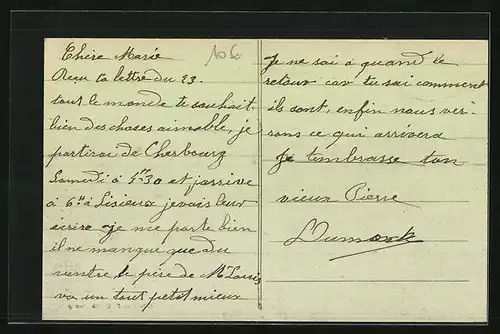 Chère Marie
106
Reçu ta lettre du 23.
tout le monde te souhait
bien des choses aimable, je
partirai de Cherbourg
Samedi à 4h30 et jarrive
à 6h à Lisieux je vais leur
écrire je me porte bien
il ne manque que du
ventre, le père de Mr Louis
va un tout petit mieux
Je ne sai à quand le
retour car tu sai comment
ils sont, enfin nous ver-
rons ce qui arrivera
Je tembrasse ton
vieux Pierre